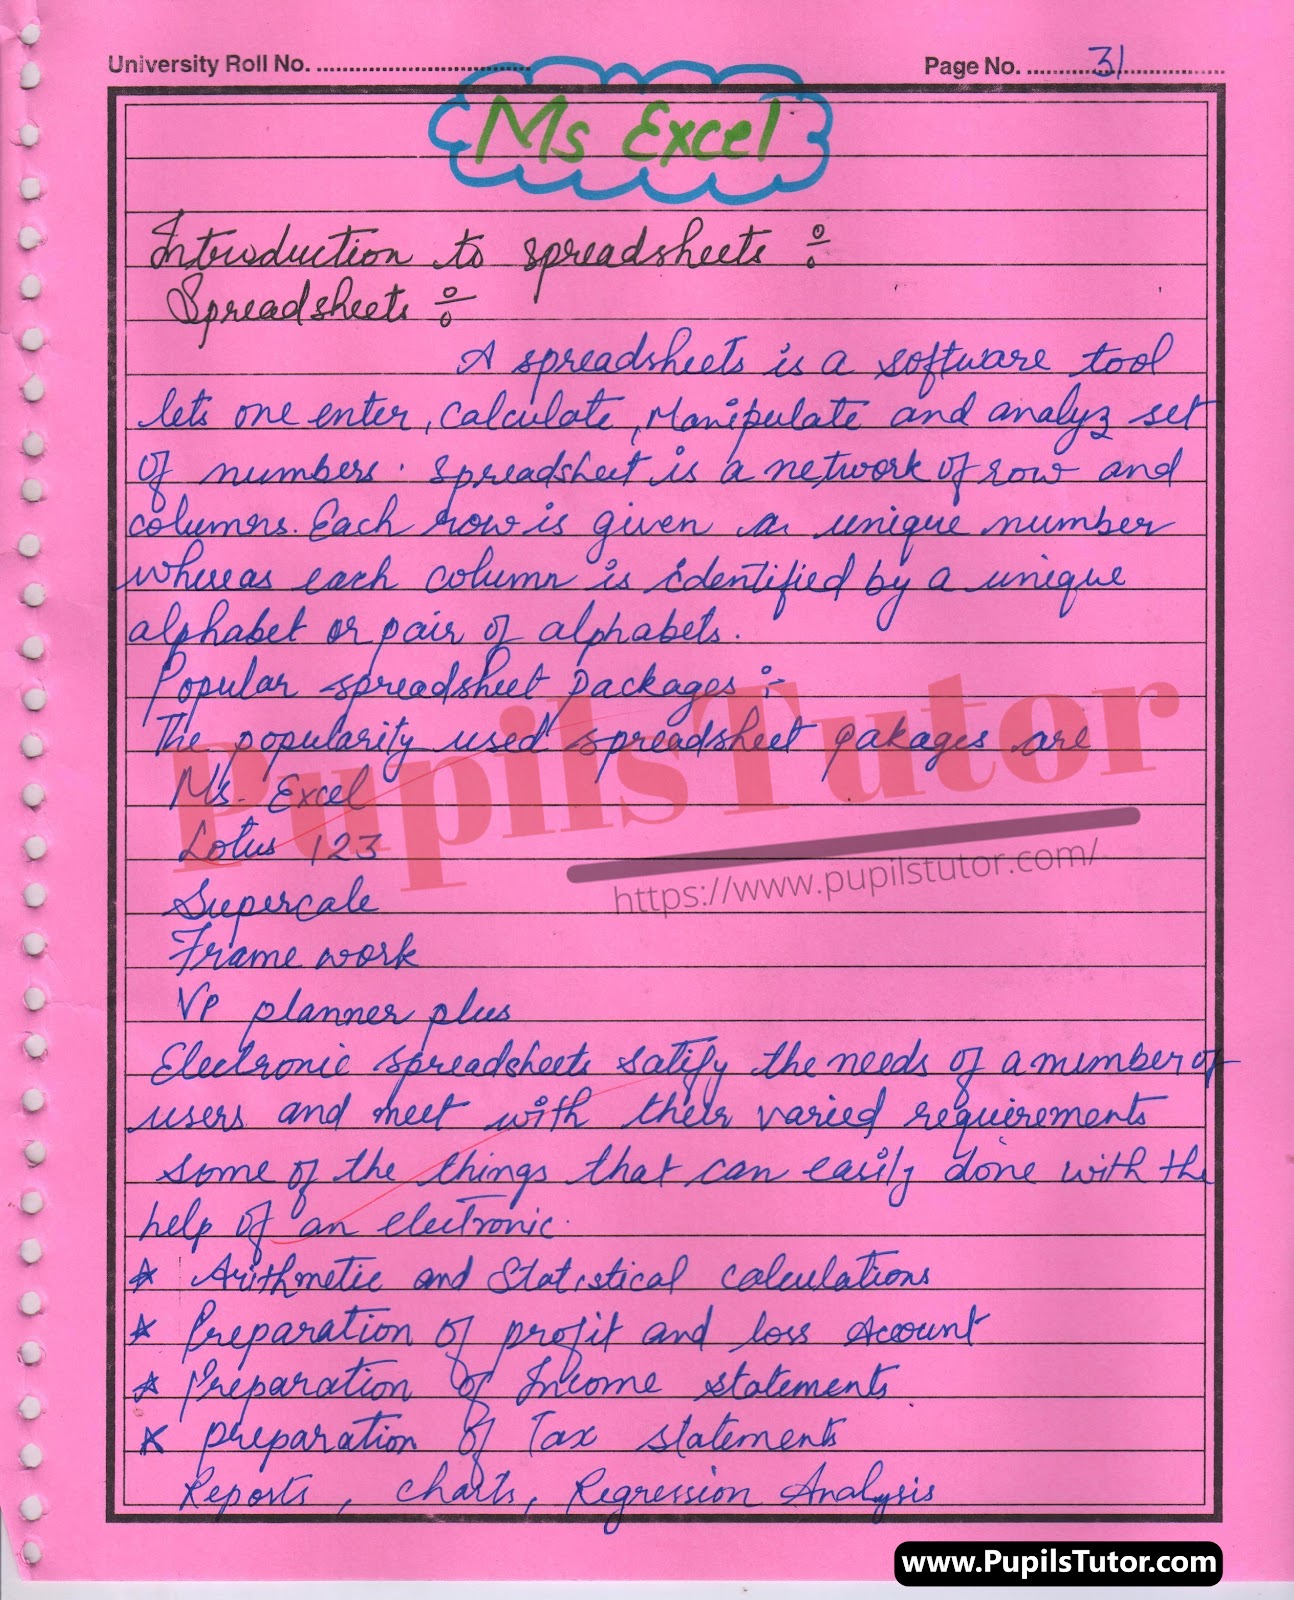 University Roll No. ................................ Page No. ...........31...............
Ms Excel
Introduction to spreadsheets ÷
Spreadsheets ÷
A spreadsheets is a software tool
lets one enter, Calculate, Manipulate and analyz set
of numbers. Spreadsheet is a network of row and
columns. Each row is given a unique number
whereas each column is identified by a unique
alphabet or pair of alphabets.
Popular spreadsheet packages :-
The popularity used spreadsheet pakages are
Ms. Excel
Lotus 123
Supercale
Frame work
VP planner plus
Electronic spreadsheets satify the needs of a number of
users and meet with their varied requirements
some of the things that can easily done with the
help of an electronic.
* Arithmetic and Statistical calculations
* Preparation of profit and loss Account
* Preparation of Income statements
* preparation of Tax statements
Reports, charts, Regression Analysis
PupilsTutor
https://www.pupilstutor.com/
www.PupilsTutor.com